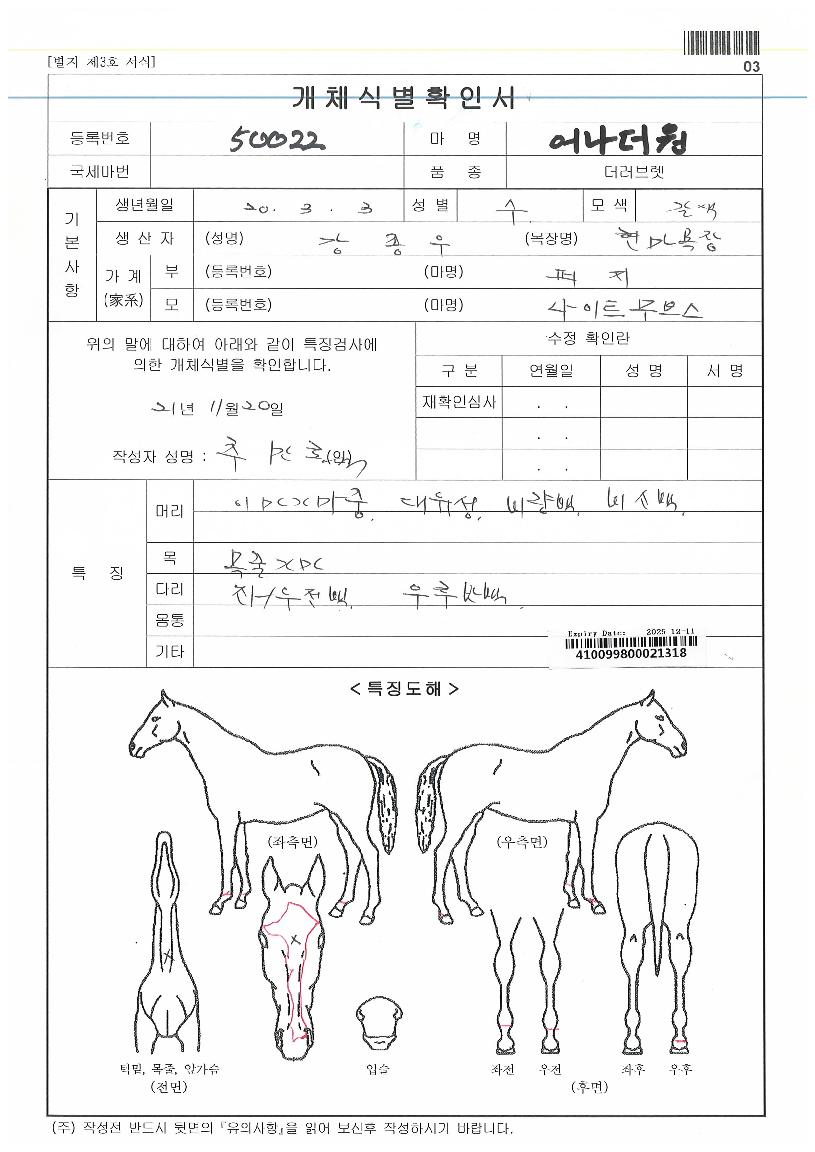 [별지 제3호 서식]
03
개체식별확인서
등록번호 50022 마 명 어나더원
국제마번 품 종 더러브렛
기본사항
생년월일 20. 3. 3 성 별 수 모 색 갈색
생 산 자 (성명) 강종우 (목장명) 현마목장
가 계 (家系) 부 (등록번호) (마명) 퍼지
모 (등록번호) (마명) 사이트무브스
위의 말에 대하여 아래와 같이 특징검사에
의한 개체식별을 확인합니다.
21년 11월 20일
작성자 성명 : (인)
수정 확인란
구 분 연월일 성 명 서 명
재확인심사 . .
. .
. .
특 징
머리 대유성, 비량백, 비소백.
목 목줄
다리
몸통
기타
Expiry Date: 2025-12-11
410099800021318
< 특징도해 >
(좌측면) (우측면)
턱밑, 목줄, 앞가슴
(전면)
입술
좌전 우전 좌후 우후
(후면)
(주) 작성전 반드시 뒷면의 『유의사항』을 읽어 보신후 작성하시기 바랍니다.